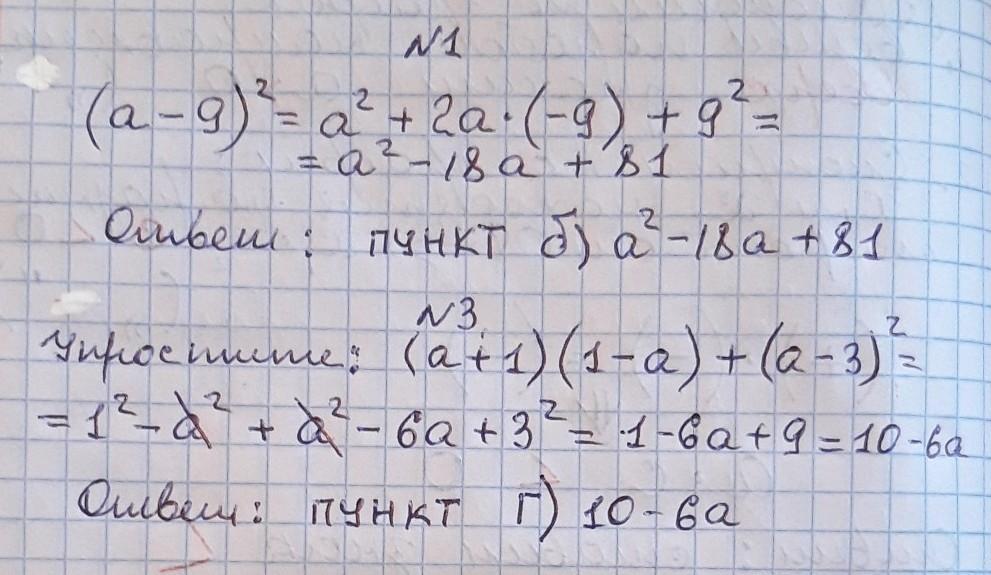 N1
(a-9)² = a² + 2a·(-9) + 9² =
= a² - 18a + 81
Ответ: пункт б) a² - 18a + 81
N3
Упростите: (a+1)(1-a) + (a-3)² =
= 1² - a² + a² - 6a + 3² = 1 - 6a + 9 = 10 - 6a
Ответ: пункт г) 10 - 6a